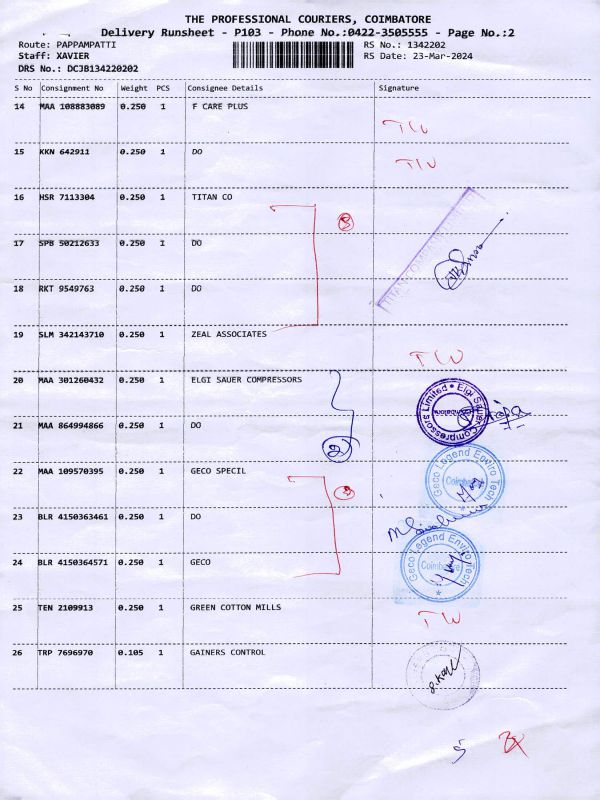 THE PROFESSIONAL COURIERS, COIMBATORE
Delivery Runsheet - P103 - Phone No.:0422-3505555 - Page No.:2
Route: PAPPAMPATTI RS No.: 1342202
Staff: XAVIER RS Date: 23-Mar-2024
DRS No.: DCJB134220202
S No Consignment No Weight PCS Consignee Details Signature
14 MAA 108883089 0.250 1 F CARE PLUS
15 KKN 642911 0.250 1 DO
16 HSR 7113304 0.250 1 TITAN CO
3
17 SPB 50212633 0.250 1 DO
18 RKT 9549763 0.250 1 DO
19 SLM 342143710 0.250 1 ZEAL ASSOCIATES
20 MAA 301260432 0.250 1 ELGI SAUER COMPRESSORS
Elgi Sauer Compressors Limited
Coimbatore
21 MAA 864994866 0.250 1 DO
2
22 MAA 109570395 0.250 1 GECO SPECIL
3
Geco Legend Enviro Tech
Coimbatore
23 BLR 4150363461 0.250 1 DO
24 BLR 4150364571 0.250 1 GECO
Geco Legend Enviro Tech
Coimbatore
25 TEN 2109913 0.250 1 GREEN COTTON MILLS
26 TRP 7696970 0.105 1 GAINERS CONTROL